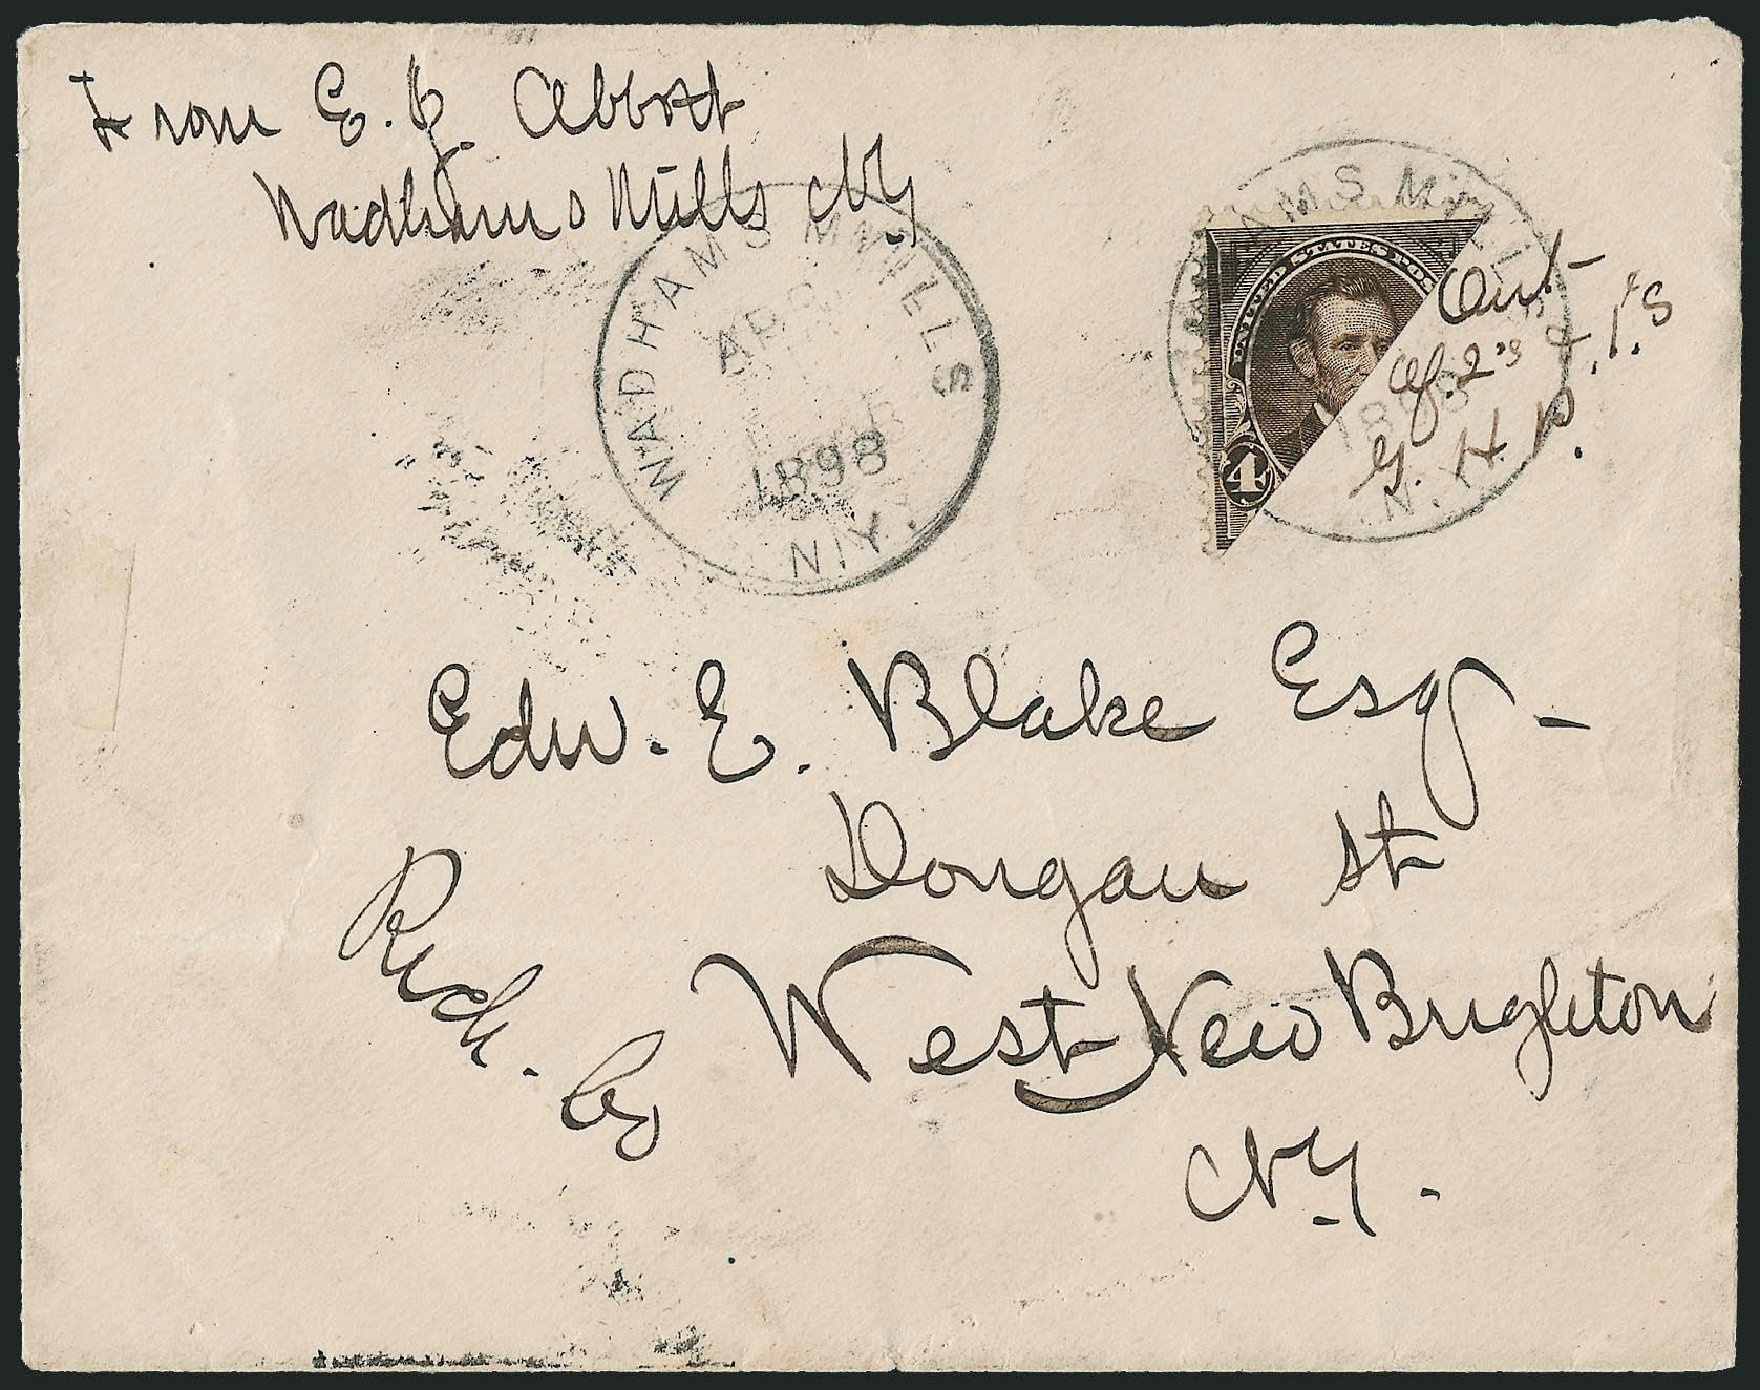 From E. J. Abbott
Wadhams Mills NY
WADHAMS MILLS
APR
1898
N.Y.
AMS MILLS
1898
N.Y.
UNITED STATES POS
4
Out
of 2's & 1's
G. H. P.
Edw. E. Blake Esq -
Dongan St
West New Brighton
Rich. Co
NY.